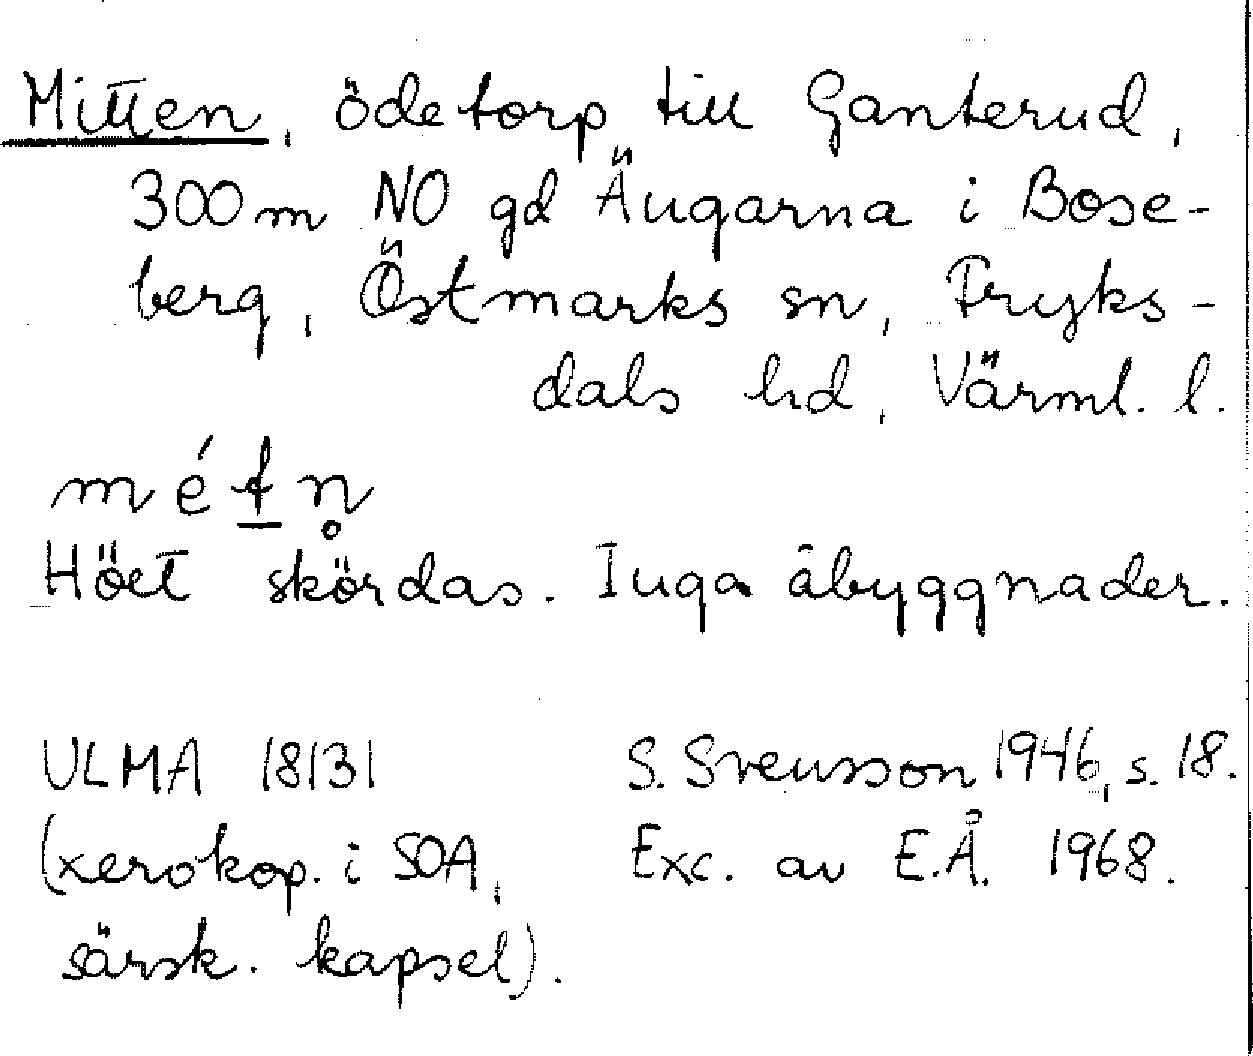 Mitten, ödetorp till Ganterud,
300 m NO gd Ängarna i Bose-
berg, Östmarks sn, Fryks-
dals hd, Värml. l.
métn̥
Höet skördas. Inga åbyggnader.
ULMA 18131 S. Svensson 1946, s. 18.
(xerokop. i SOA, Exc. av E.Å. 1968.
särsk. kapsel).